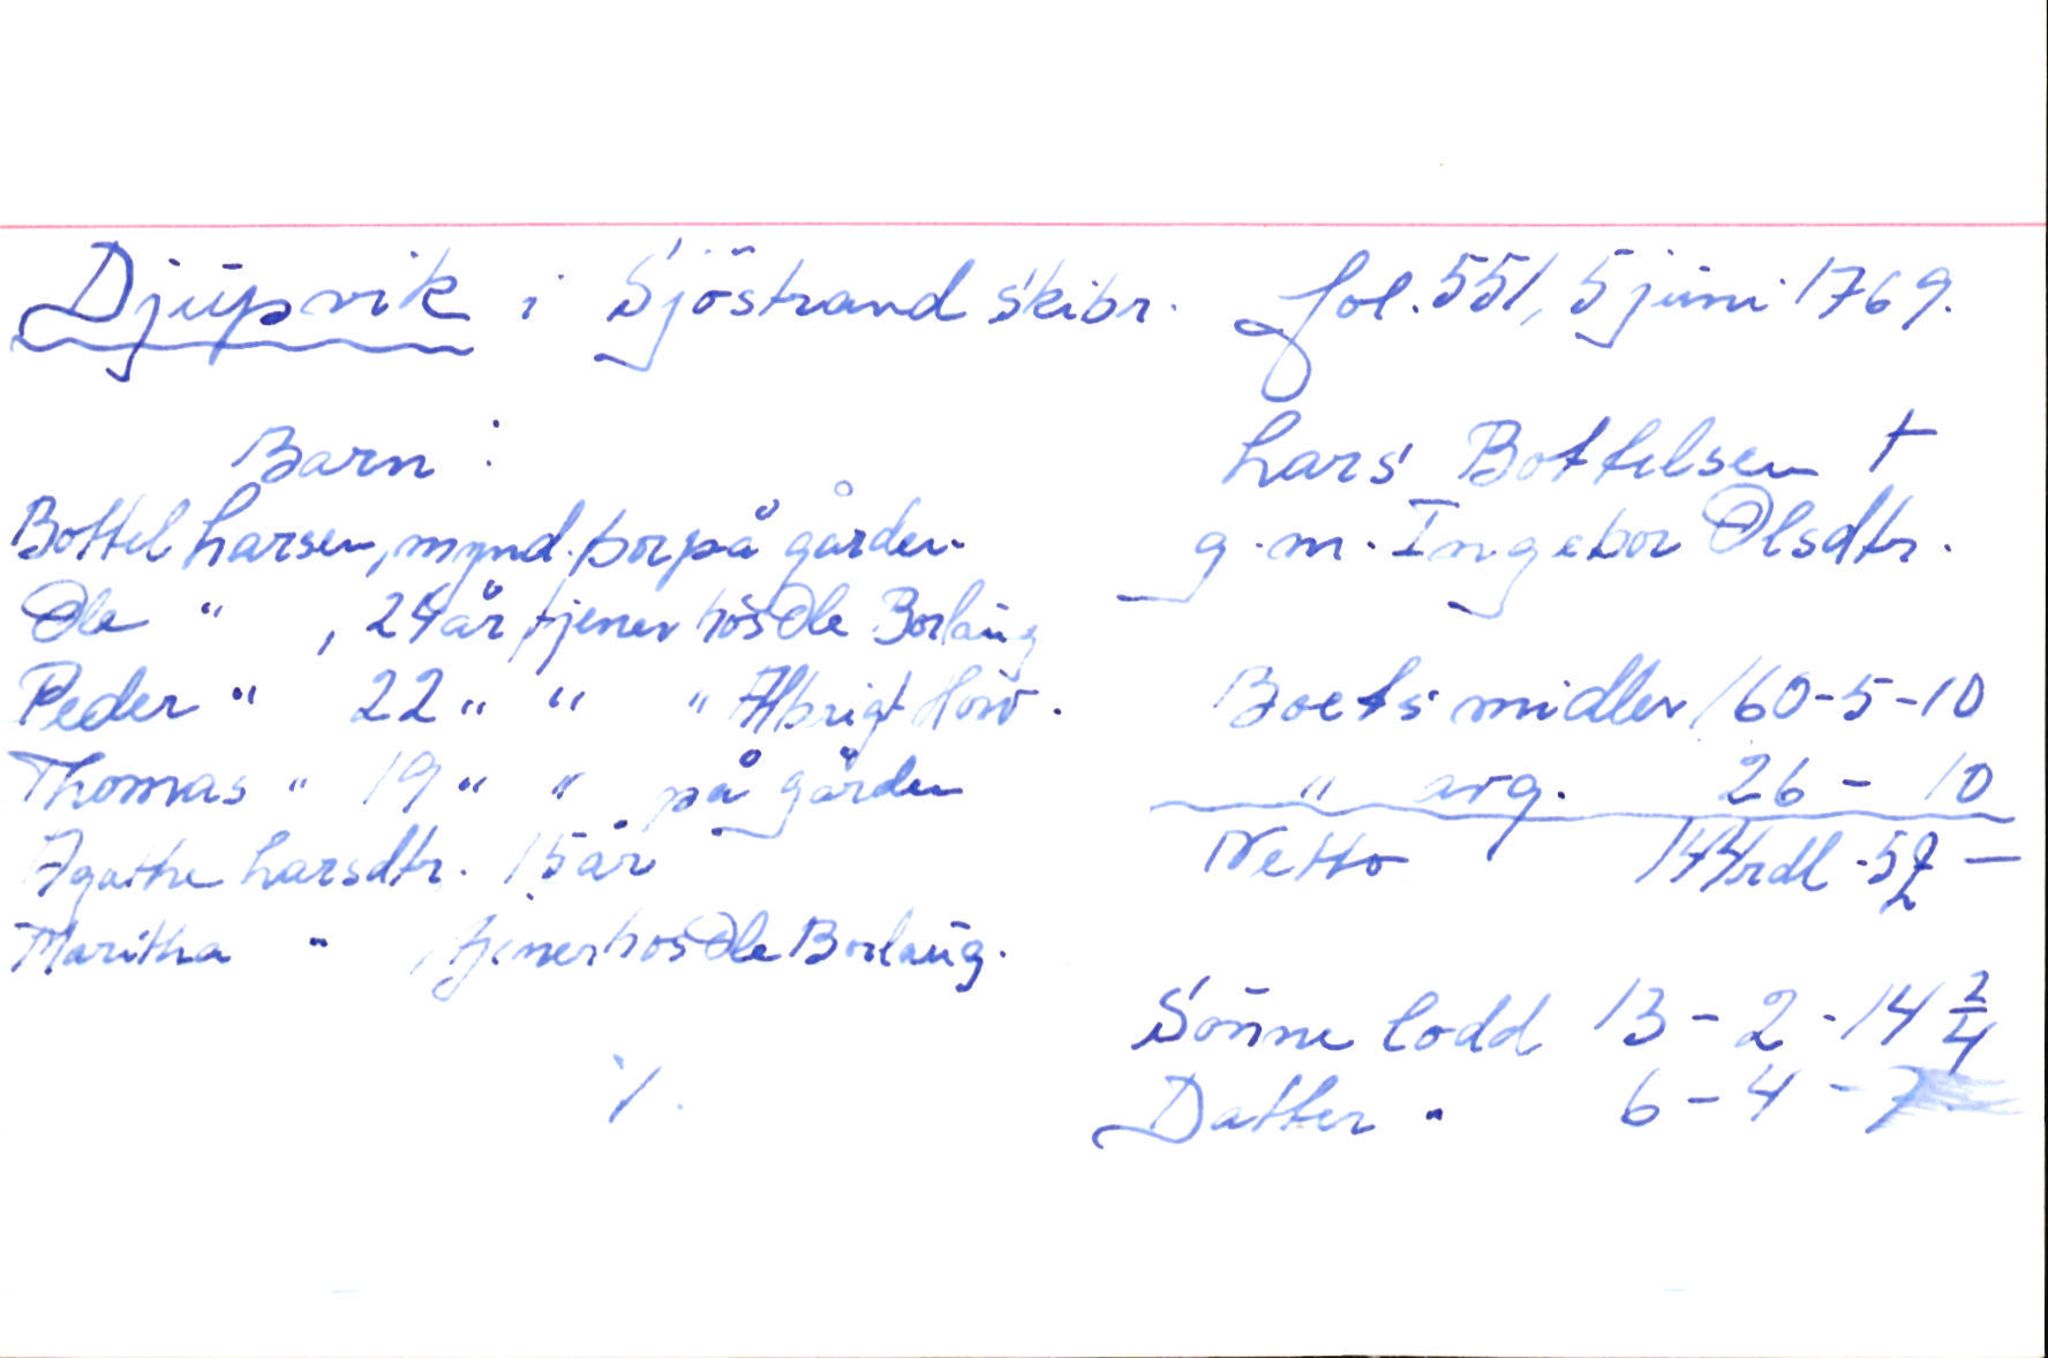 Djupvik i Sjöstrand skibr. fol. 551, 5 juni 1769.
Barn :
Bottel Larsen, mynd. bor på gården.
Ole " , 24 år tjener hos Ole Borlaug
Peder " 22 " " " Albrigt
Thomas " 19 " " på gården
Agathe Larsdtr. 15 år
Maritha " , tjener hos Ole Borlaug.
Lars Bottelsen †
g. m. Ingebor Olsdtr.
Boets midler 160-5-10
" arg. 26 - 10
Netto rdl
Sönne lodd 13 - 2 - 14 2/4
Datter " 6 - 4 - 7